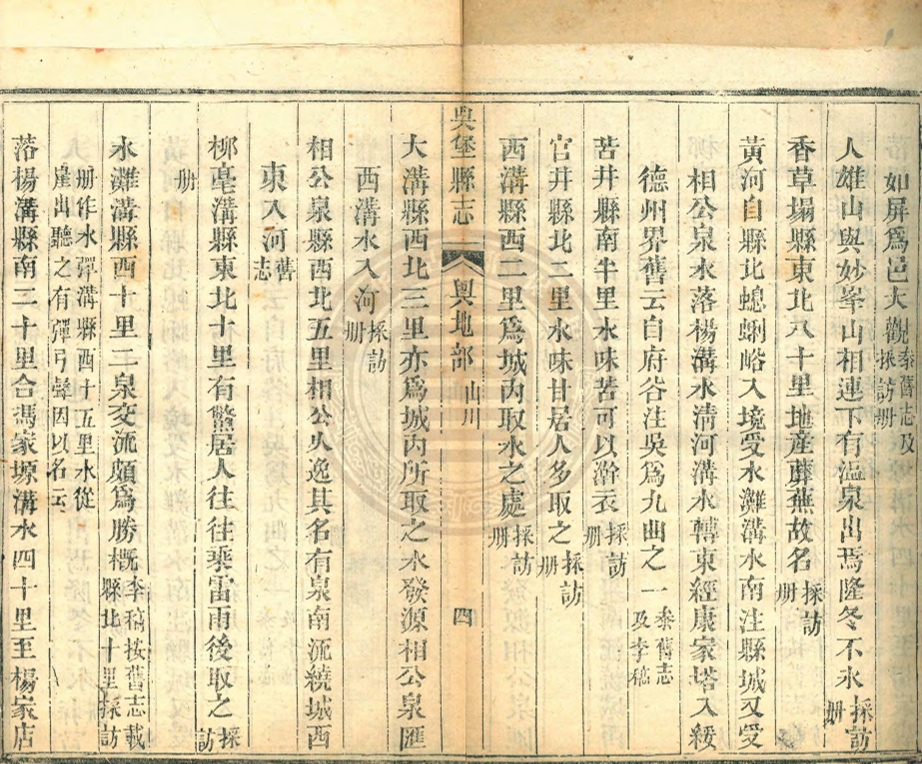 如屏爲邑大觀叅舊志及採訪册
人雄山與妙峯山相連下有溫泉出焉隆冬不氷採訪册
香草塌縣東北八十里地産蘼蕪故名採訪册
黃河自縣北螅蜊峪入境受水灘溝水南注縣城又受
相公泉水落楊溝水淸河溝水轉東經康家塔入綏
德州界舊云自府谷注吳爲九曲之一叅舊志及李稿
苦井縣南半里水味苦可以澣衣採訪册
官井縣北二里水味甘居人多取之採訪册
西溝縣西二里爲城內取水之處採訪册
吳堡縣志 輿地部 山川 四
大溝縣西北三里亦爲城內所取之水發源相公泉匯
西溝水入河採訪册
相公泉縣西北五里相公火逸其名有泉南流繞城西
東入河舊志
柳毫溝縣東北十里有鱉居人往往乘雷雨後取之採訪
册
水灘溝縣西十里二泉交流頗爲勝槪李稿按舊志載縣北十里採訪
册作水彈溝縣西十五里水從崖出聽之有彈弓聲因以名云
落楊溝縣南二十里合馮家塬溝水四十里至楊家店